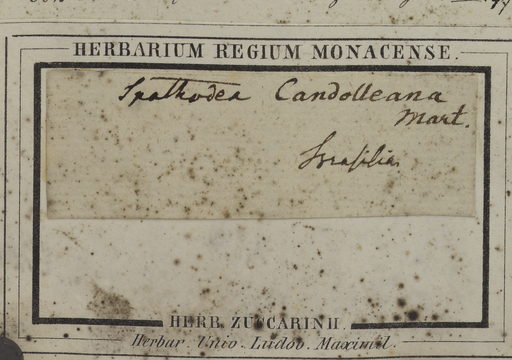 HERBARIUM REGIUM MONACENSE.
Spathodea Candolleana
Mart.
Brasilia
HERB. ZUCCARINII.
Herbar. Univ. Ludov. Maximil.